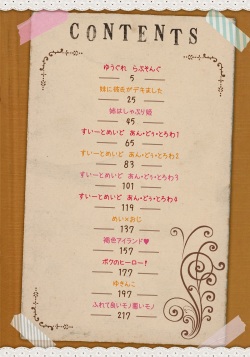 CONTENTS
ゆうぐれ らぶそんぐ
5
妹に彼氏がデキました
25
姉はしゃぶり姫
45
すいーとめいど あん・どぅ・とろわ1
65
すいーとめいど あん・どぅ・とろわ2
83
すいーとめいど あん・どぅ・とろわ3
101
すいーとめいど あん・どぅ・とろわ4
119
めい×おじ
137
褐色アイランド♥
157
ボクのヒーロー!
177
ゆきんこ
197
ふれて良いモノ悪いモノ
217